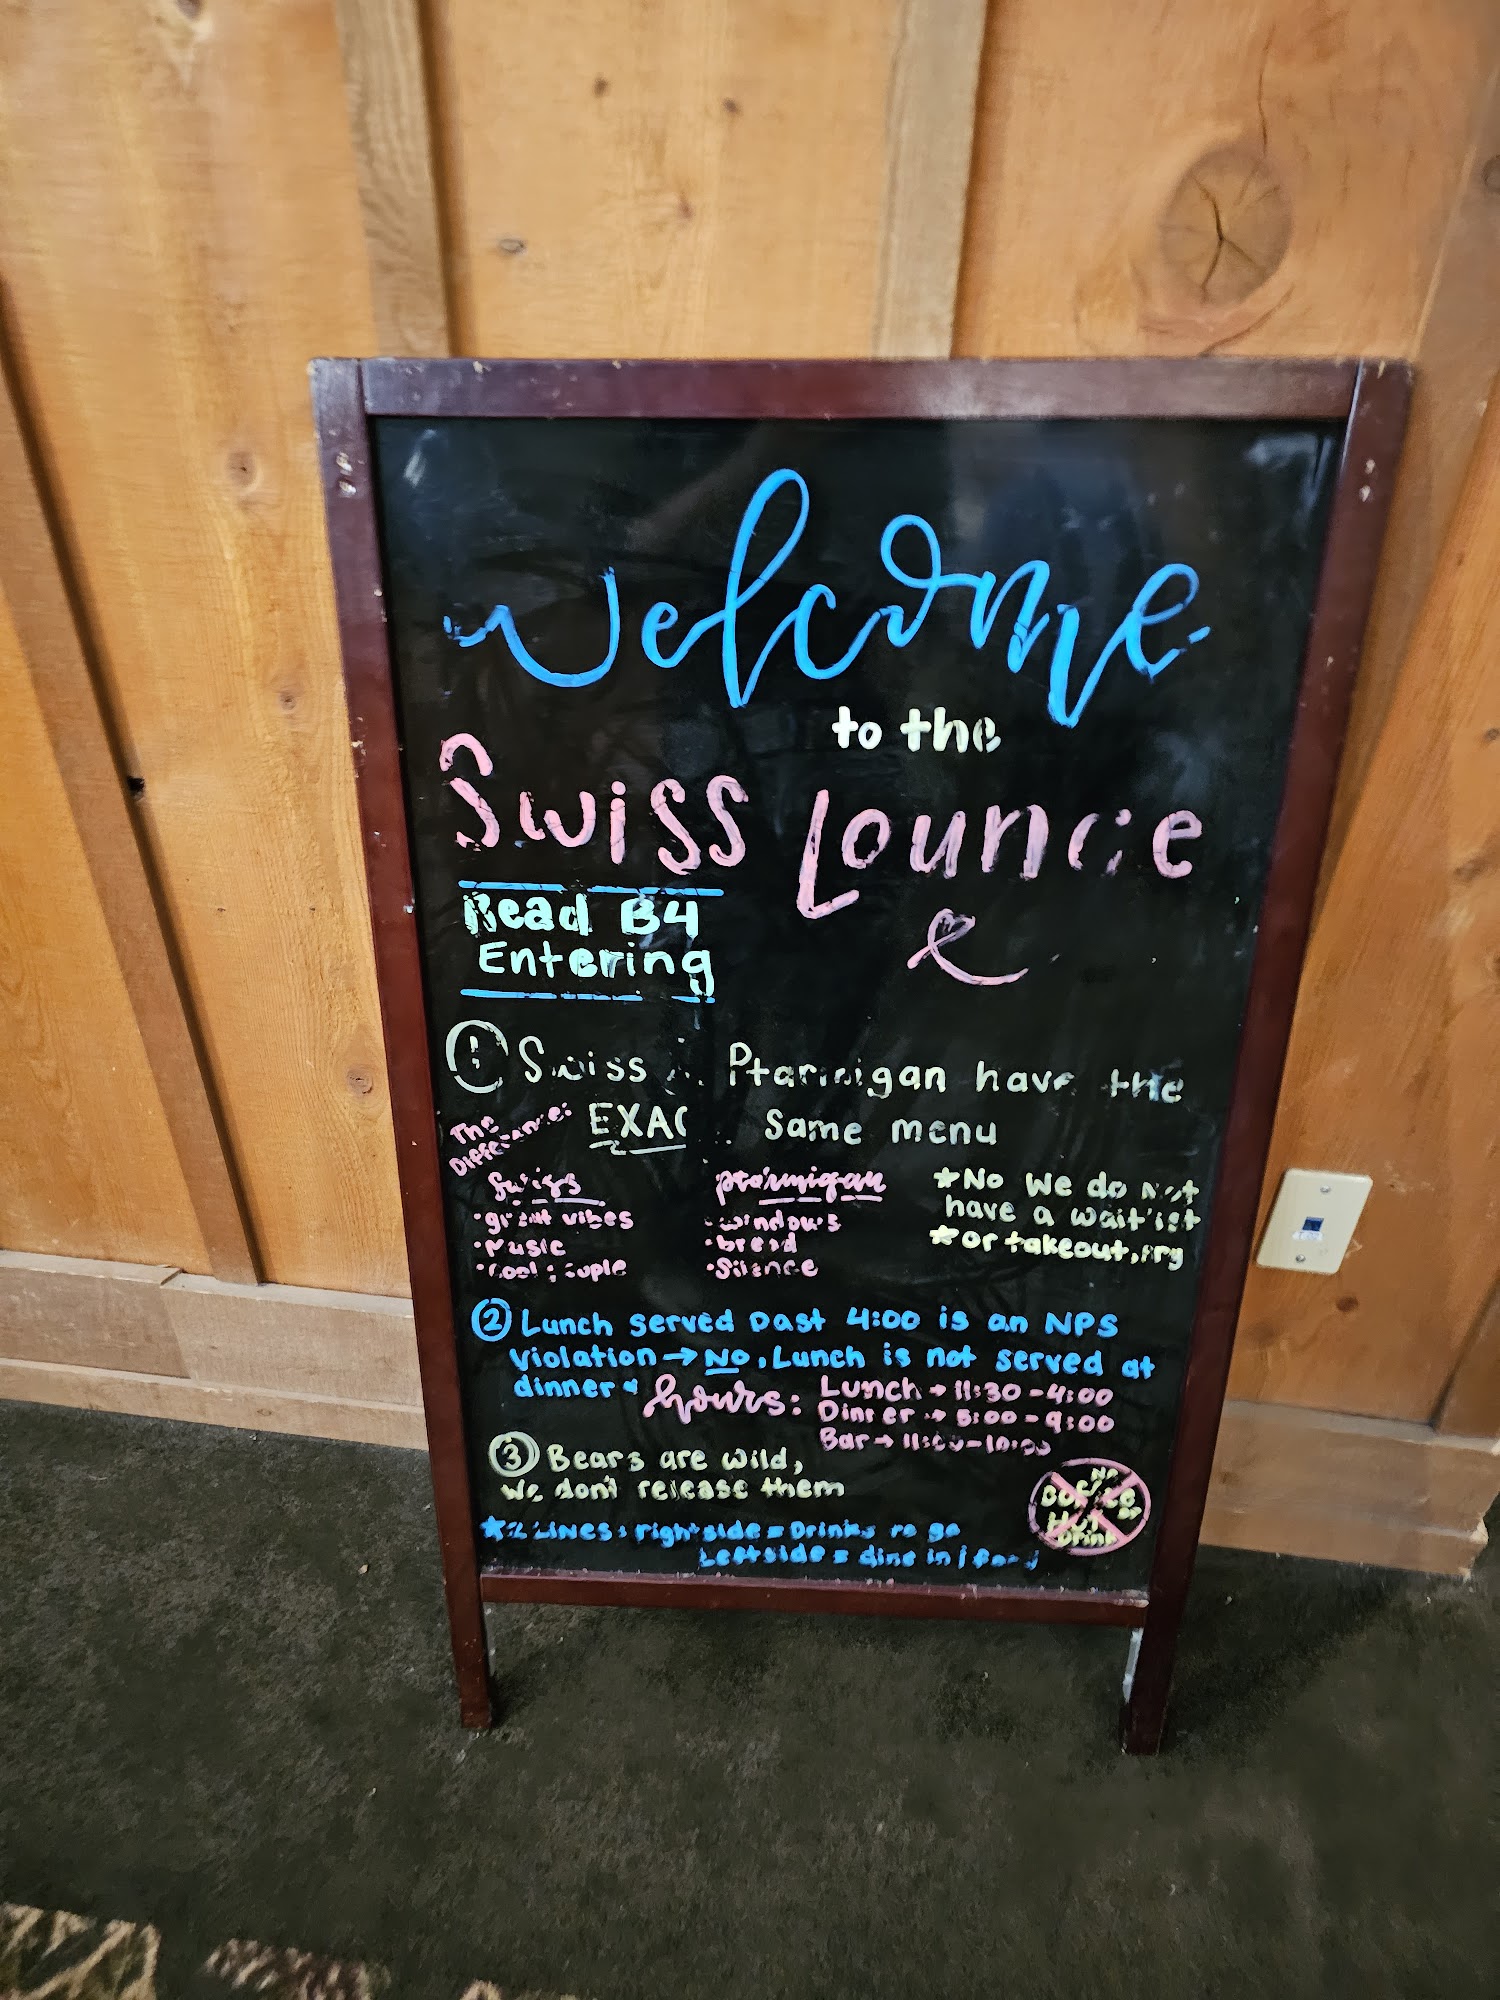 Welcome
to the
Swiss Lounge
Read B4
Entering
① Swiss Ptarmigan have the
The
Difference:
EXAC same menu
Swiss
• great vibes
• Music
• cool
ptarmigan
• windows
• bread
• Silence
*No we do not
have a waitlist
*or takeout, sry
② Lunch served past 4:00 is an NPS
violation → No, Lunch is not served at
dinner
hours: Lunch → 11:30 - 4:00
Dinner → 5:00 - 9:00
Bar → 11:00 - 10:00
③ Bears are wild,
we don't release them
*2 LINES: right side = Drinks to go
Left side = dine in / food
No
Coffee or
Hot
Drink